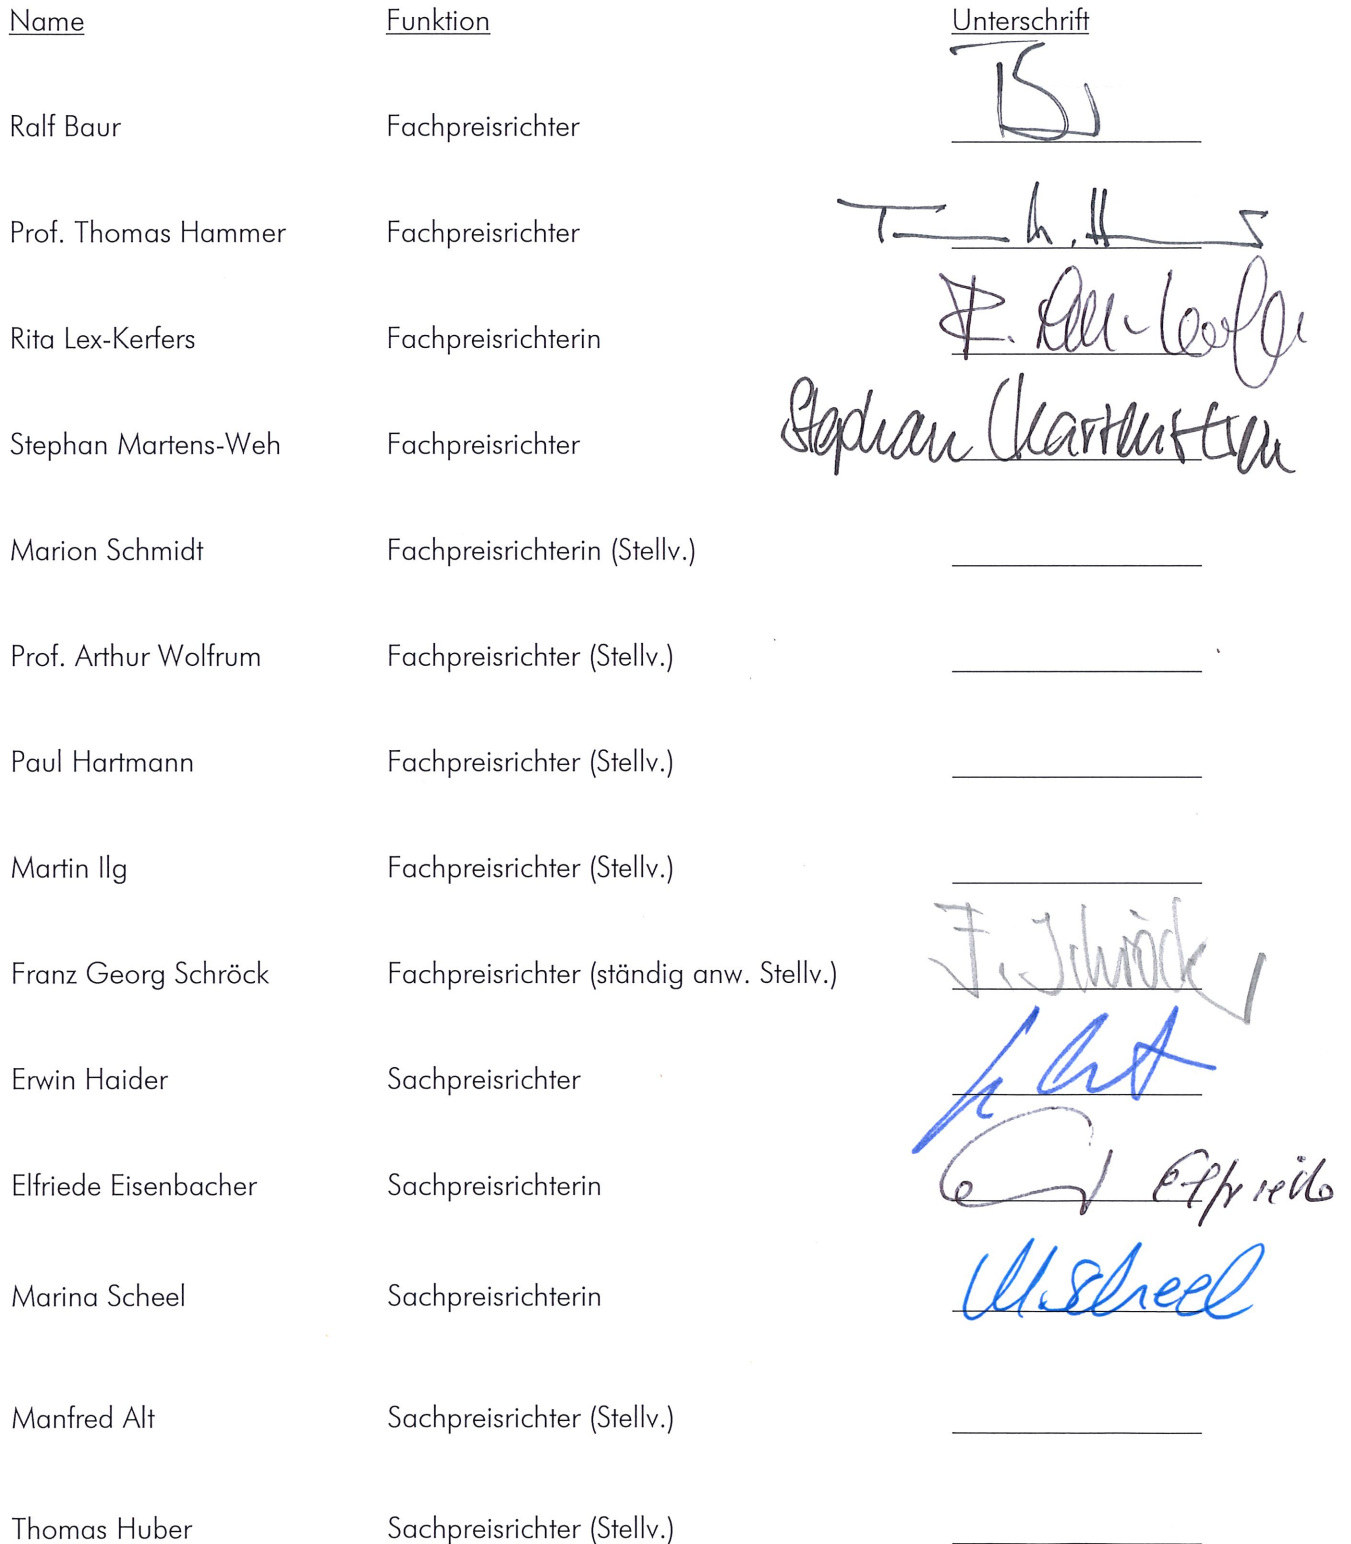 Name Funktion Unterschrift
Ralf Baur Fachpreisrichter
Prof. Thomas Hammer Fachpreisrichter
Rita Lex-Kerfers Fachpreisrichterin R. Lex-Kerfers
Stephan Martens-Weh Fachpreisrichter Stephan
Marion Schmidt Fachpreisrichterin (Stellv.)
Prof. Arthur Wolfrum Fachpreisrichter (Stellv.)
Paul Hartmann Fachpreisrichter (Stellv.)
Martin Ilg Fachpreisrichter (Stellv.)
Franz Georg Schröck Fachpreisrichter (ständig anw. Stellv.) F. Schröck
Erwin Haider Sachpreisrichter
Elfriede Eisenbacher Sachpreisrichterin Elfriede
Marina Scheel Sachpreisrichterin M. Scheel
Manfred Alt Sachpreisrichter (Stellv.)
Thomas Huber Sachpreisrichter (Stellv.)